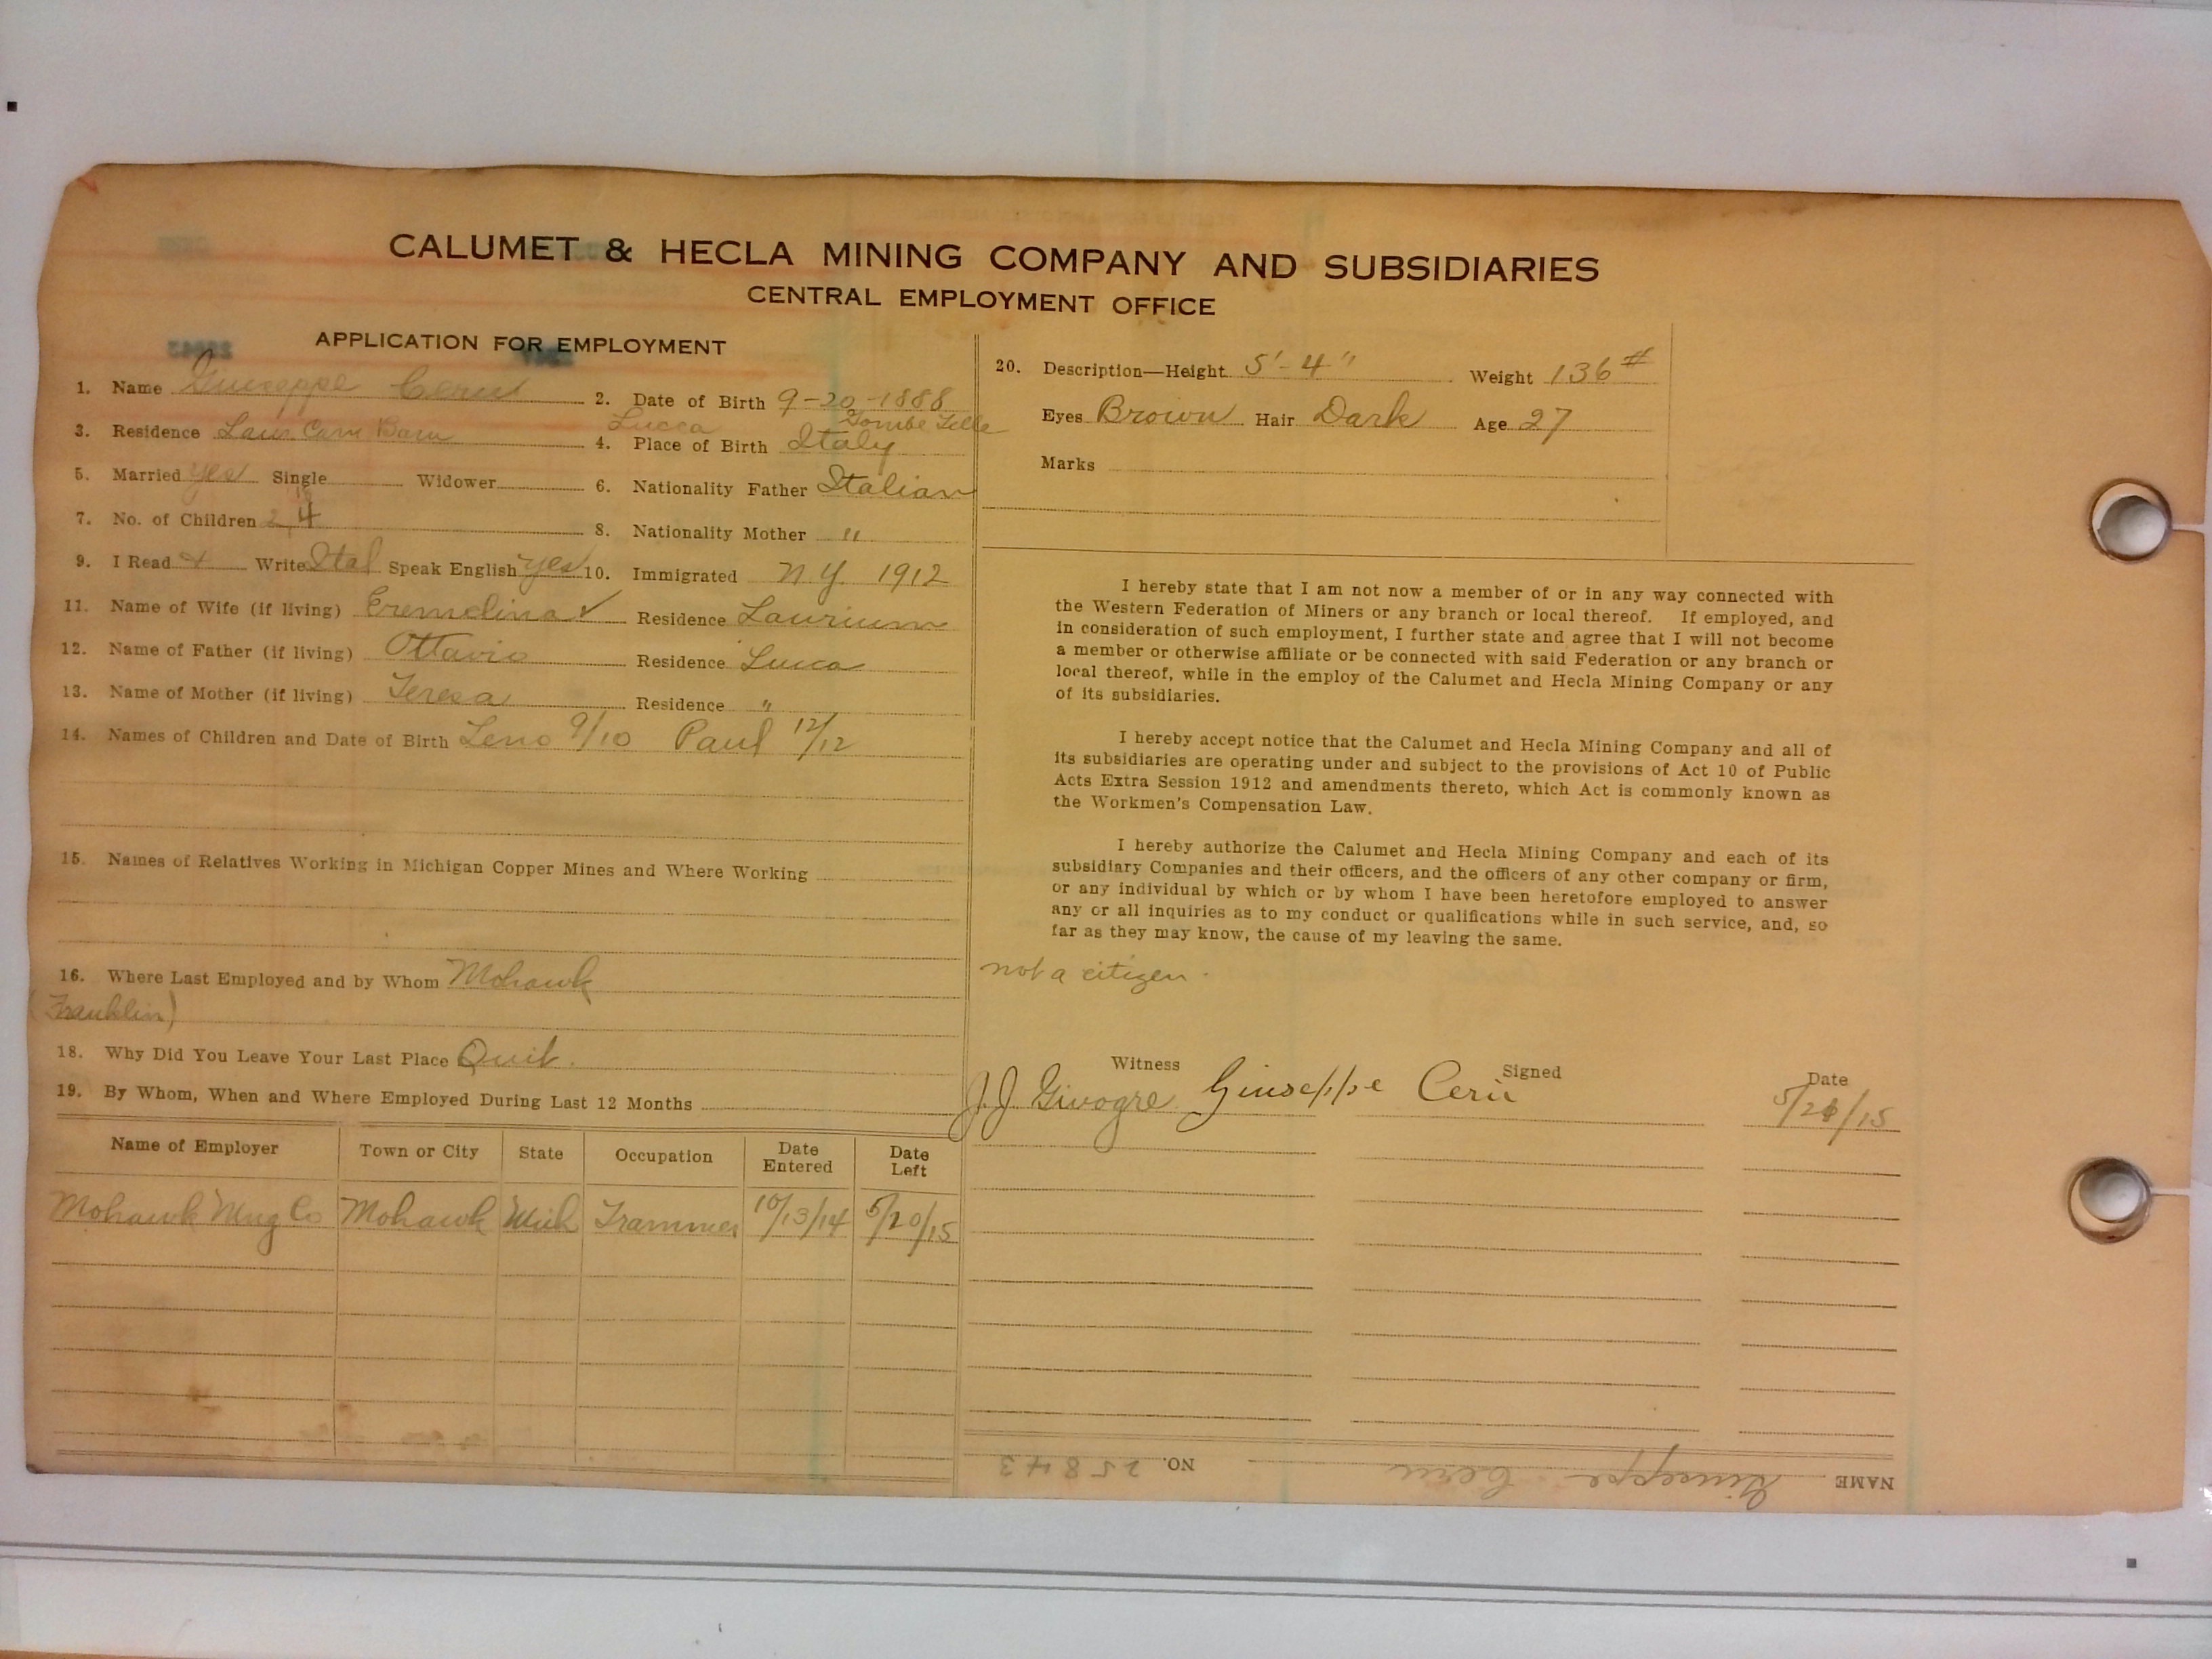 CALUMET & HECLA MINING COMPANY AND SUBSIDIARIES
CENTRAL EMPLOYMENT OFFICE
APPLICATION FOR EMPLOYMENT
1. Name Giuseppe Ceru 2. Date of Birth 9-20-1888
3. Residence Laur. Car Barn 4. Place of Birth Lucca Italy
5. Married yes Single Widower 6. Nationality Father Italian
7. No. of Children 2 4 8. Nationality Mother "
9. I Read + Write Ital Speak English yes 10. Immigrated N.Y. 1912
11. Name of Wife (if living) Eremelina ✓ Residence Laurium
12. Name of Father (if living) Ottavio Residence Lucca
13. Name of Mother (if living) Teresa Residence "
14. Names of Children and Date of Birth Leno 9/10 Paul 12/12
15. Names of Relatives Working in Michigan Copper Mines and Where Working
16. Where Last Employed and by Whom Mohawk
(Franklin)
18. Why Did You Leave Your Last Place Quit.
19. By Whom, When and Where Employed During Last 12 Months
Name of Employer Town or City State Occupation Date Entered Date Left
Mohawk Mng Co Mohawk Mich Trammer 10/13/14 5/20/15
20. Description—Height 5'-4" Weight 136#
Eyes Brown Hair Dark Age 27
Marks
I hereby state that I am not now a member of or in any way connected with
the Western Federation of Miners or any branch or local thereof. If employed, and
in consideration of such employment, I further state and agree that I will not become
a member or otherwise affiliate or be connected with said Federation or any branch or
local thereof, while in the employ of the Calumet and Hecla Mining Company or any
of its subsidiaries.
I hereby accept notice that the Calumet and Hecla Mining Company and all of
its subsidiaries are operating under and subject to the provisions of Act 10 of Public
Acts Extra Session 1912 and amendments thereto, which Act is commonly known as
the Workmen's Compensation Law.
I hereby authorize the Calumet and Hecla Mining Company and each of its
subsidiary Companies and their officers, and the officers of any other company or firm,
or any individual by which or by whom I have been heretofore employed to answer
any or all inquiries as to my conduct or qualifications while in such service, and, so
far as they may know, the cause of my leaving the same.
not a citizen.
Witness Signed Date
J.J. Givogre Giuseppe Ceru
NAME Giuseppe Ceru NO. 25843